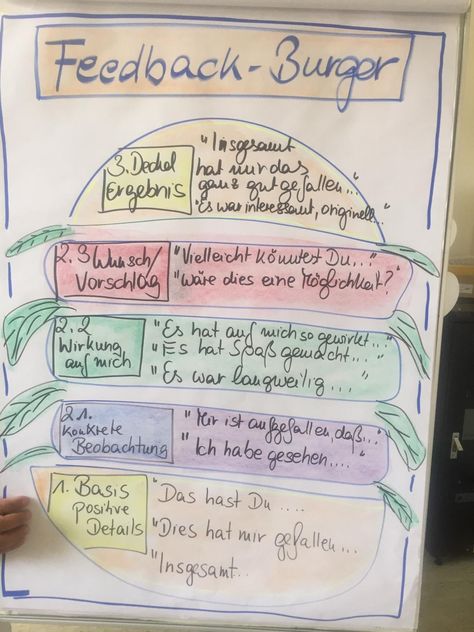 Feedback-Burger
3. Deckel
Ergebnis
"Insgesamt
hat mir das
ganz gut gefallen..."
"Es war interessant, originell..."
2.3 Wunsch/
Vorschlag
"Vielleicht könntest Du..."
"wäre dies eine Möglichkeit?"
2.2
Wirkung
auf mich
"Es hat auf mich so gewirkt..."
"Es hat Spaß gemacht..."
"Es war langweilig..."
2.1.
konkrete
Beobachtung
"Mir ist aufgefallen, daß..."
"Ich habe gesehen....
1. Basis
Positive
Details
"Das hast Du ....
"Dies hat mir gefallen...
"Insgesamt...